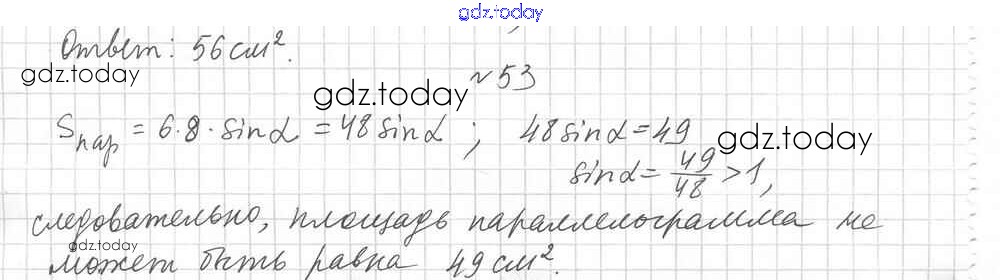 gdz.today
Ответ: 56 см².
gdz.today
№53
gdz.today
Sпар = 6·8·sinα = 48sinα; 48sinα = 49
gdz.today
sinα = 49/48 > 1,
следовательно, площадь параллелограмма не
gdz.today
может быть равна 49 см².